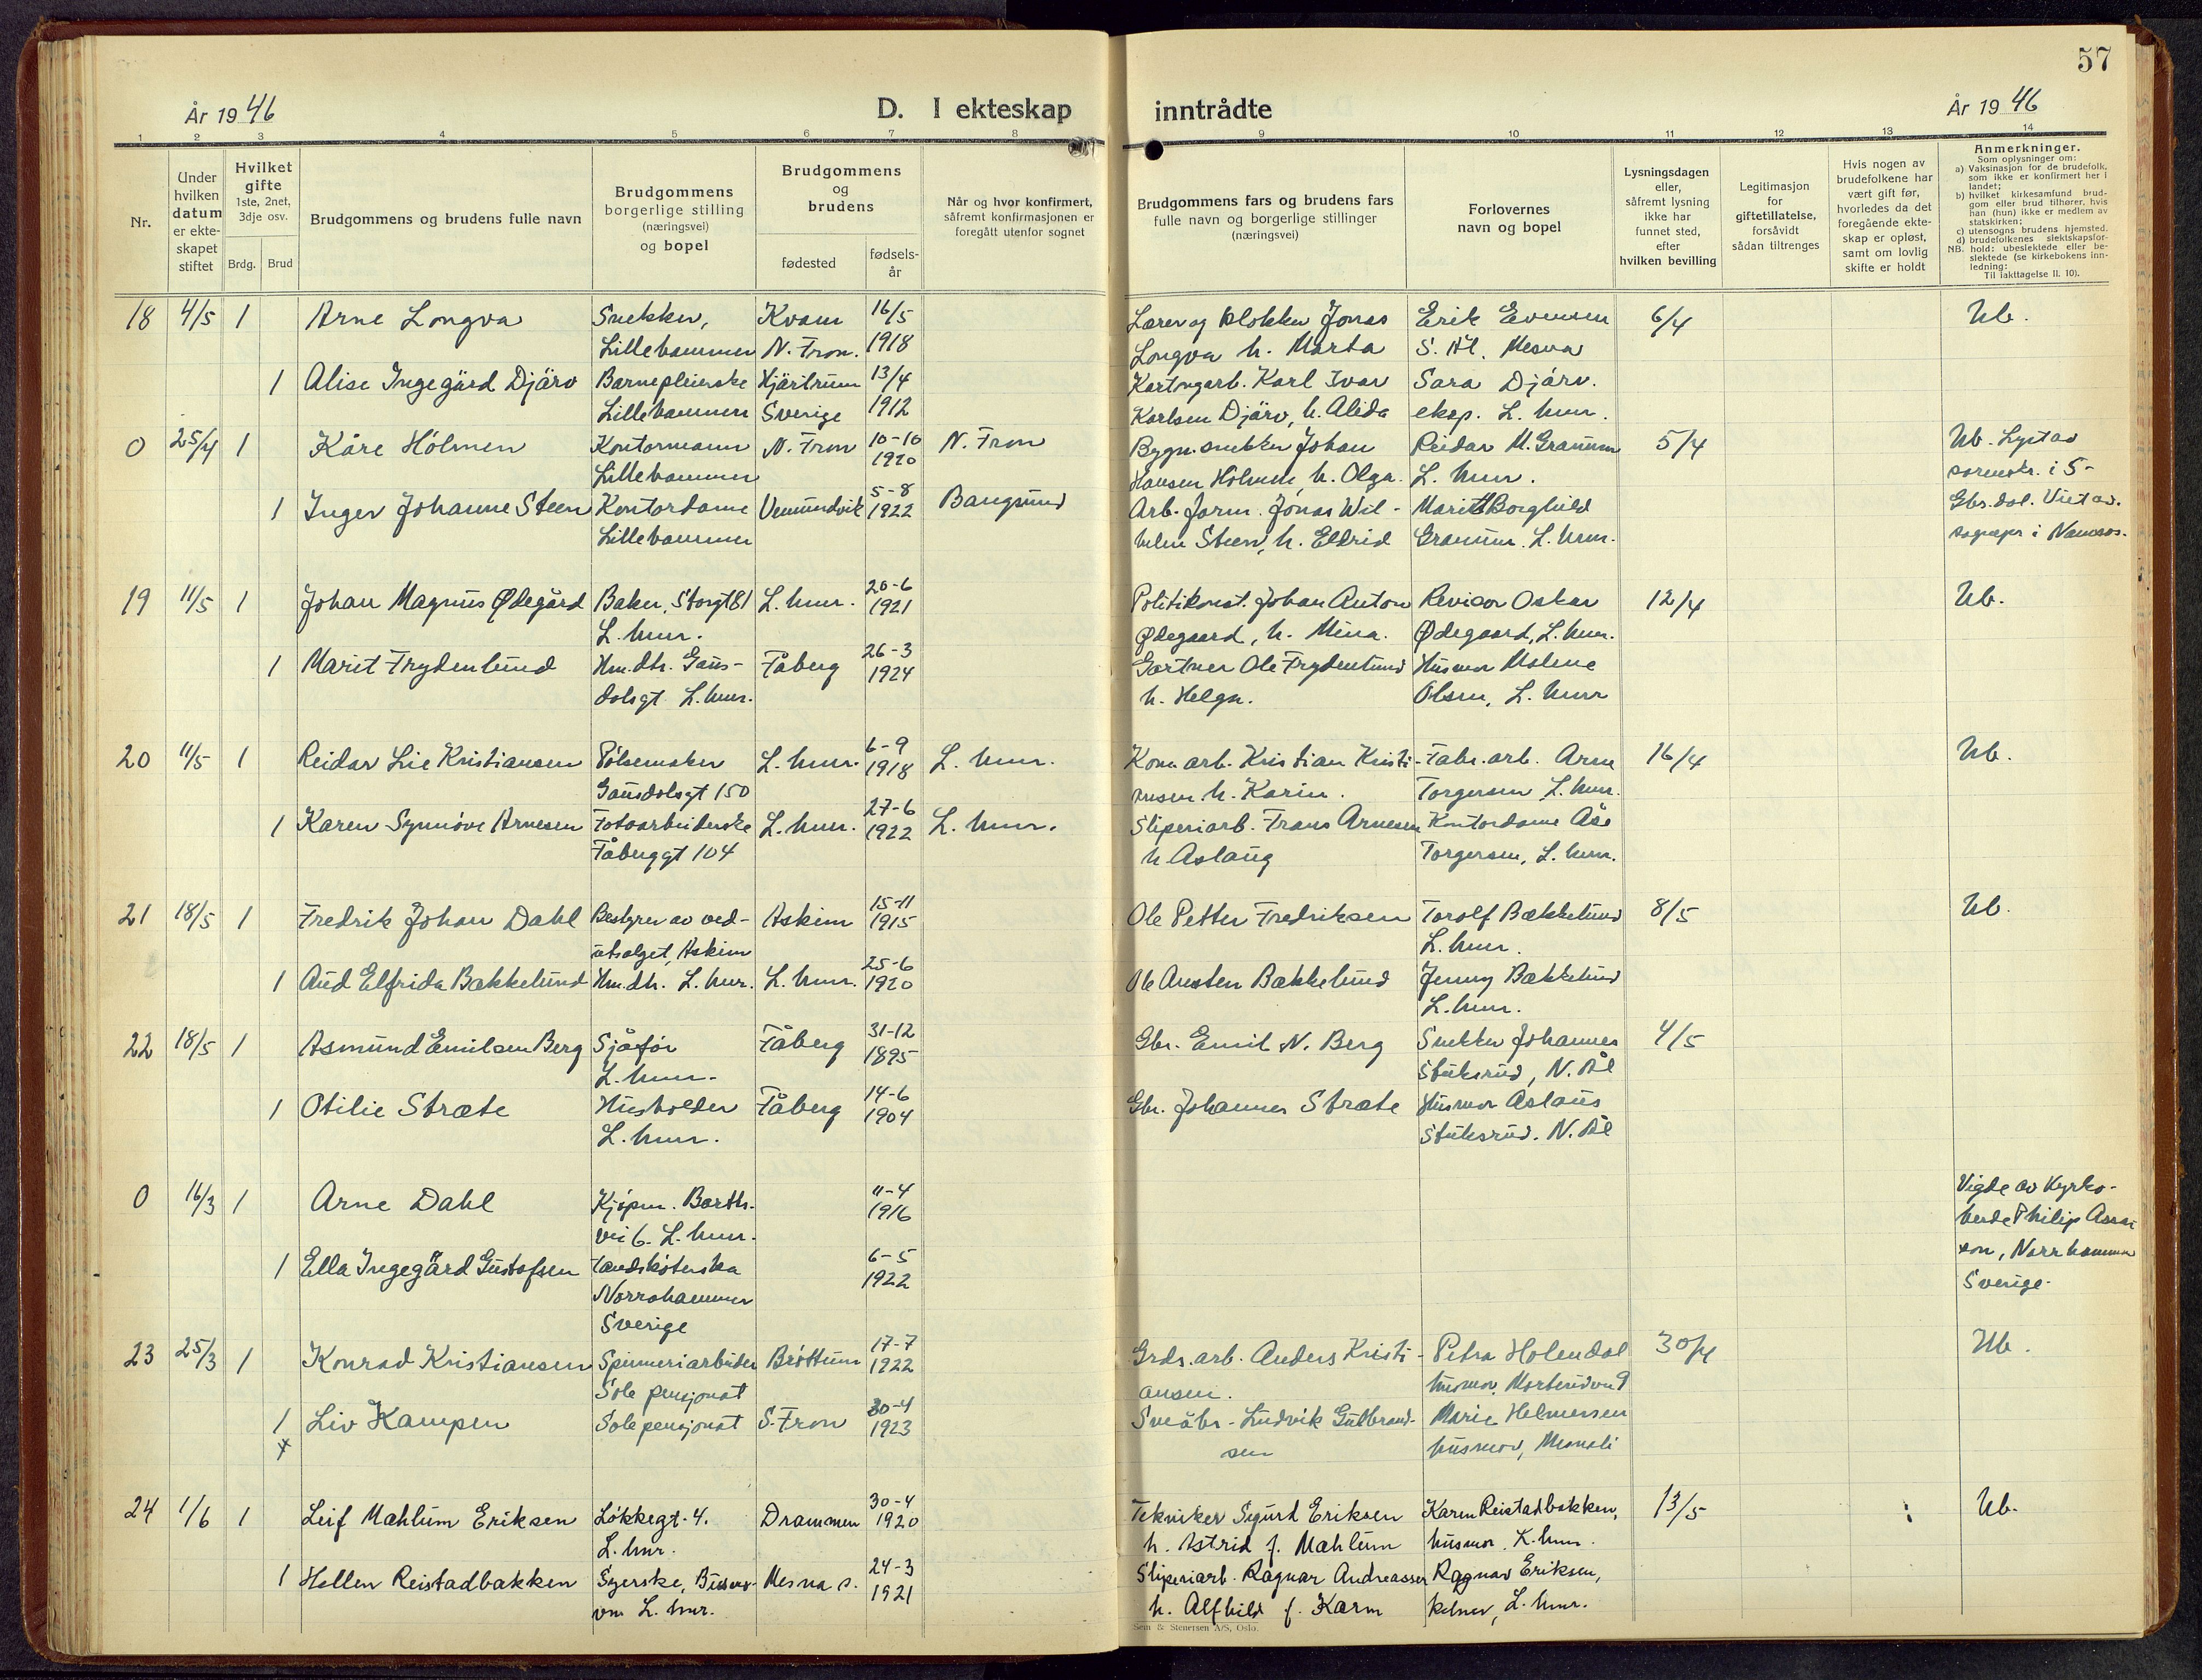 57
År 1946
D. I ekteskap
inntrådte
År 1946
1 2 3 4 5 6 7 8 9 10 11 12 13 14
Nr.
Under hvilken datum er ekteskapet stiftet
Hvilket gifte 1ste, 2net, 3dje osv.
Brdg. Brud
Brudgommens og brudens fulle navn
Brudgommens borgerlige stilling (næringsvei) og bopel
Brudgommens og brudens
fødested
fødsels-år
Når og hvor konfirmert, såfremt konfirmasjonen er foregått utenfor sognet
Brudgommens fars og brudens fars fulle navn og borgerlige stillinger (næringsvei)
Forlovernes navn og bopel
Lysningsdagen eller, såfremt lysning ikke har funnet sted, efter hvilken bevilling
Legitimasjon for giftetillatelse, forsåvidt sådan tiltrenges
Hvis nogen av brudefolkene har vært gift før, hvorledes da det foregående ekteskap er opløst, samt om lovlig skifte er holdt
Anmerkninger.
Som oplysninger om:
a) Vaksinasjon for de brudefolk, som ikke er konfirmert her i landet;
b) hvilket kirkesamfund brudgom eller brud tilhører, hvis han (hun) ikke er medlem av statskirken;
c) utensogns brudens hjemsted.
d) brudefolkenes slektskapsforhold: ubeslektede eller beslektede (se kirkebokens innledning:
NB.
Til iakttagelse II. 10).
18 4/5 1 Arne Longva Snekker, Kvam 16/5 Lærer og klokker Jonas Erik Evensen 6/4 Ub.
Lillehammer N. Fron. 1918 Longva h. Marta S. Ål. Mesna
1 Alise Ingegärd Djärv Barnepleierske 13/4 Kartongarb. Karl Ivar Sara Djärv.
Lillehammer Sverige 1912 Karlsen Djärv, h. Alida eksp. L. hmr.
0 25/4 1 Kåre Holmen Kontormann N. Fron 10-10 N. Fron Bygn.snekker Johan Reidar M. Granum 5/4 Ub.
Lillehammer 1920 Hansen Holmen, h. Olga. L. hmr. i S-
1 Inger Johanne Steen Kontordame Vemundvik 5-8 1922 Bangsund Arb. form. Jonas Wil- Marit Borghild Gbr.dal.
Lillehammer helm Steen, h. Eldrid Granum. L. hmr. i Namsos.
19 11/5 1 Johan Magnus Ødegård Baker, Storgt 81 L. hmr. 20-6 1921 Politikonst. Johan Anton Revisor Oskar 12/4 Ub.
L. hmr. Ødegaard, h. Mina. Ødegaard, L. hmr.
1 Marit Frydenlund Hm.dtr. Gaus- Fåberg 26-3 1924 Gartner Ole Frydenlund Husmor Malene
dalsgt. L. hmr. h. Helga. Olsen, L. hmr
20 11/5 1 Reidar Lie Kristiansen Pølsemaker L. hmr. 6-9 1918 L. hmr. Kom. arb. Kristian Kristi- Fabr. arb. Arne 16/4 Ub.
Gausdalsgt 150 ansen h. Karin. Torgersen L. hmr.
1 Karen Synnøve Arnesen Fotoarbeiderske L. hmr. 27-6 1922 L. hmr. Sliperiarb. Frans Arnesen Kontordame Åse
Fåberggt 104 h Aslaug Torgersen, L. hmr.
21 18/5 1 Fredrik Johan Dahl Bestyrer av ved- Askim 15-11 1915 Ole Petter Fredriksen Torolf Bækkelund 8/5 Ub.
utsalget, Askim L. hmr.
1 Aud Elfrida Bækkelund Hm.dtr. L. hmr. L. hmr. 25-6 1920 Ole Austen Bækkelund Jenny Bækkelund
L. hmr.
22 18/5 1 Asmund Emilsen Berg Sjåfør Fåberg 31-12 1895 Gbr. Emil N. Berg Snekker Johannes 4/5
L. hmr. Stuksrud, N. Ål
1 Otilie Stræte Husholder Fåberg 14-6 1904 Gbr. Johannes Stræte Husmor Aslaug
L. hmr. Stuksrud. N. Ål
0 16/3 1 Arne Dahl Kjøpm. Barth. 11-4 1916 Vigde av Kyrko-
vei 6. L. hmr. herde Philip
1 Ella Ingegärd Gustafsen Tandsköterska 6-5 1922 Norrhammar
Norrahammar Sverige.
Sverige
23 25/3 1 Konrad Kristiansen Spinneriarbeider Brøttum 17-7 1922 Grds. arb. Anders Kristi- Petra Holendal 30/4 Ub.
Sole pensjonat ansen. husmor
1 Liv Kampen Sole pensjonat S. Fron 30-4 1923 Småbr. Ludvik Gulbrand- Marie Helmersen
x sen husmor, Mesnali
24 1/6 1 Leif Mæhlum Eriksen Løkkegt. 4. Drammen 30-4 1920 Tekniker Sigurd Eriksen Karen Reistadbakken, 13/5 Ub.
L. hmr. h. Astrid f. Mæhlum husmor. L. hmr.
1 Hellen Reistadbakken Syerske, Mesna s. 24-3 1921 Sliperiarb. Ragnar Andreassen Ragnar Eriksen,
L. hmr. h. Alfhild f. Karm kelner, L. hmr.
Sem & Stenersen A/S, Oslo.